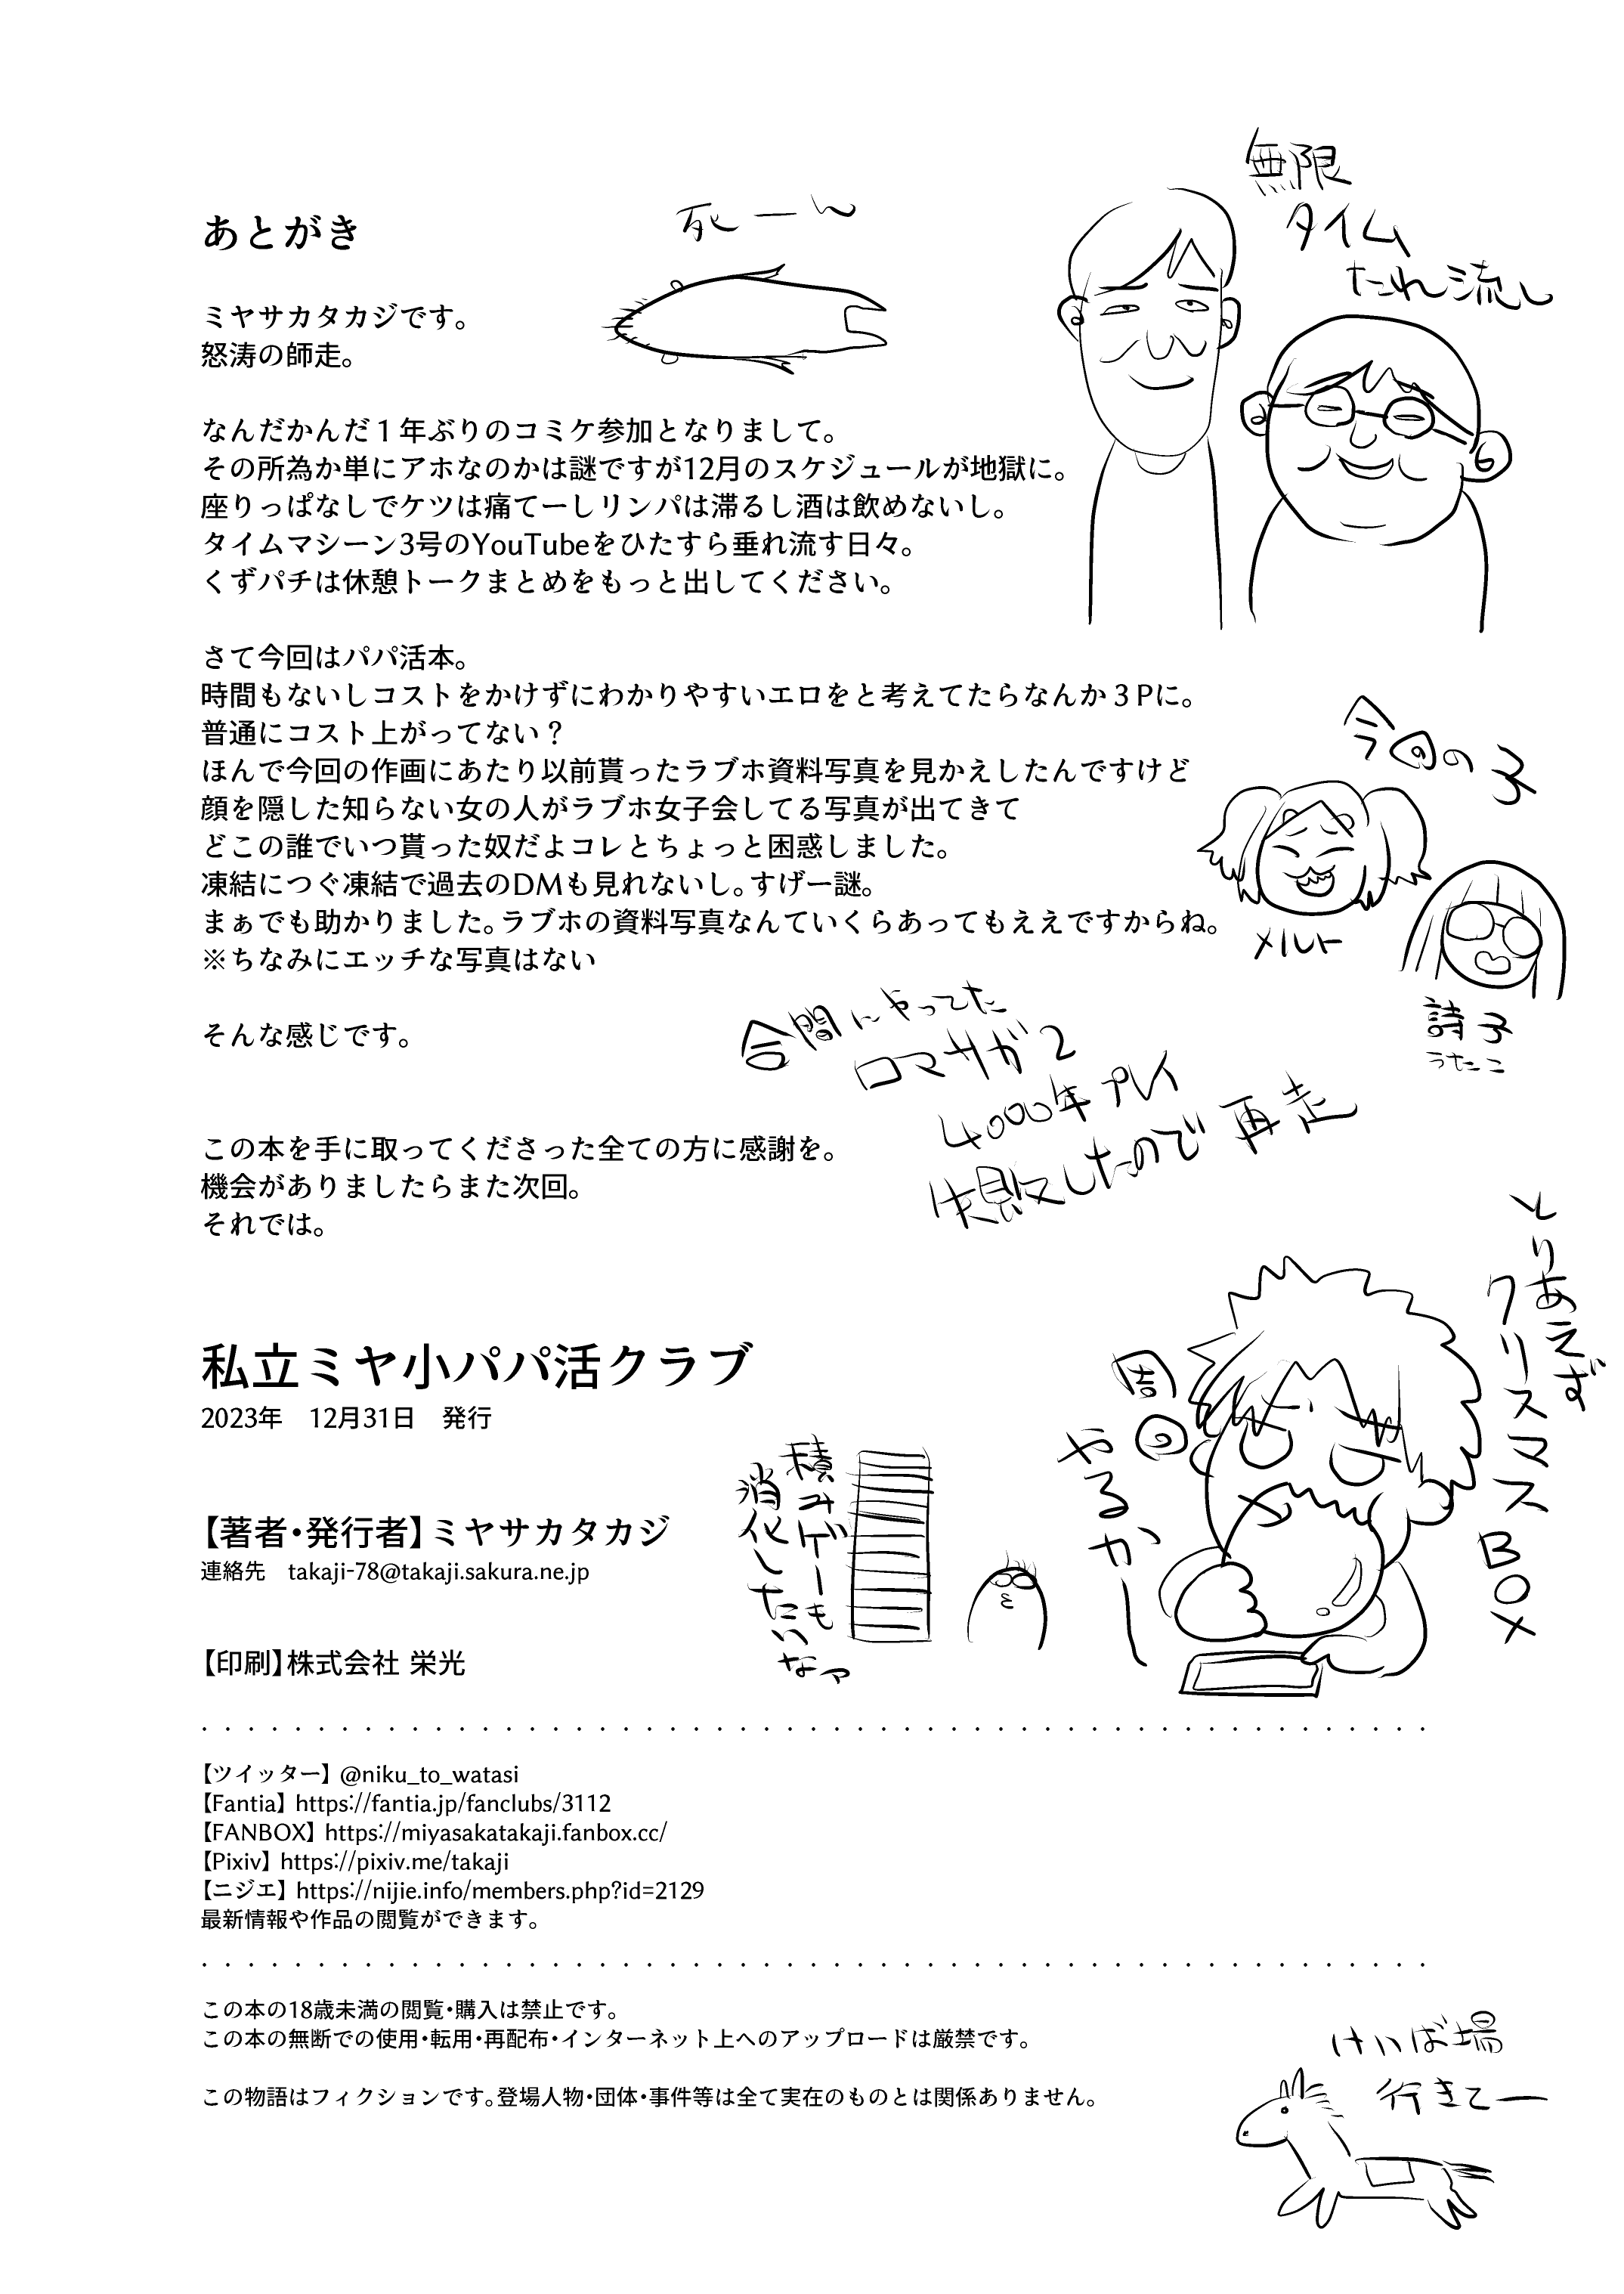 あとがき
死ーん
無限
タイム
たれ流し
ミヤサカタカジです。
怒涛の師走。
なんだかんだ１年ぶりのコミケ参加となりまして。
その所為か単にアホなのかは謎ですが12月のスケジュールが地獄に。
座りっぱなしでケツは痛てーしリンパは滞るし酒は飲めないし。
タイムマシーン3号のYouTubeをひたすら垂れ流す日々。
くずパチは休憩トークまとめをもっと出してください。
さて今回はパパ活本。
時間もないしコストをかけずにわかりやすいエロをと考えてたらなんか３Pに。
普通にコスト上がってない？
ほんで今回の作画にあたり以前貰ったラブホ資料写真を見かえしたんですけど
顔を隠した知らない女の人がラブホ女子会してる写真が出てきて
どこの誰でいつ貰った奴だよコレとちょっと困惑しました。
凍結につぐ凍結で過去のDMも見れないし。すげー謎。
まぁでも助かりました。ラブホの資料写真なんていくらあってもええですからね。
※ちなみにエッチな写真はない
今回の子
メルト
詩子
うたこ
そんな感じです。
合間にやってた
ロマサガ2
4000年プレイ
失敗したので再走
この本を手に取ってくださった全ての方に感謝を。
機会がありましたらまた次回。
それでは。
とりあえず
クリスマスBOX
周回
やるかー
積みゲーも
消化したいなァ
私立ミヤ小パパ活クラブ
2023年　12月31日　発行
【著者・発行者】ミヤサカタカジ
連絡先　takaji-78@takaji.sakura.ne.jp
【印刷】株式会社 栄光
【ツイッター】 @niku_to_watasi
【Fantia】 https://fantia.jp/fanclubs/3112
【FANBOX】 https://miyasakatakaji.fanbox.cc/
【Pixiv】 https://pixiv.me/takaji
【ニジエ】 https://nijie.info/members.php?id=2129
最新情報や作品の閲覧ができます。
この本の18歳未満の閲覧・購入は禁止です。
この本の無断での使用・転用・再配布・インターネット上へのアップロードは厳禁です。
この物語はフィクションです。登場人物・団体・事件等は全て実在のものとは関係ありません。
けいば場
行きてー